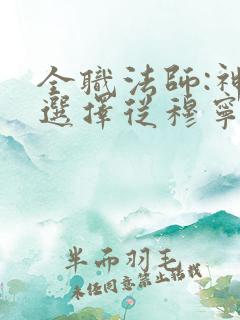 全職法師:神
選擇從穆寧
半而羽毛
未任同意禁止搭載